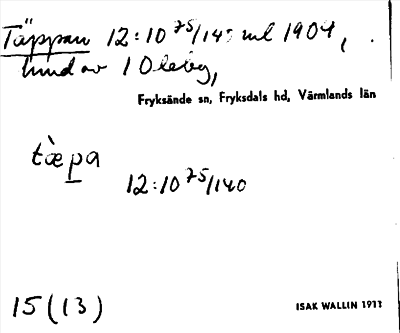 Täppan 12:10 75/140 ml 1904,
hund av 1 Oleby,
Fryksände sn, Fryksdals hd, Värmlands län
tæ̀pa
12:10 75/140
15 (13)
ISAK WALLIN 1911